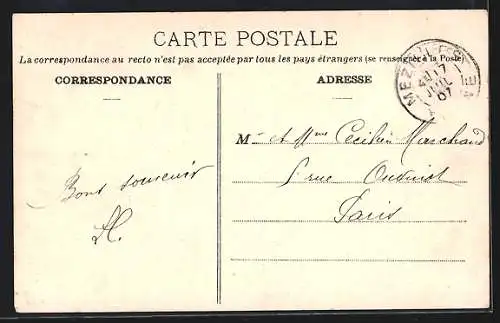 CARTE POSTALE
La correspondance au recto n'est pas acceptée par tous les pays étrangers (se renseigner à la Poste)
CORRESPONDANCE
ADRESSE
MÉZ
17
JUIL
07
M et Mme Marchand
rue
Paris
Bont souvenir